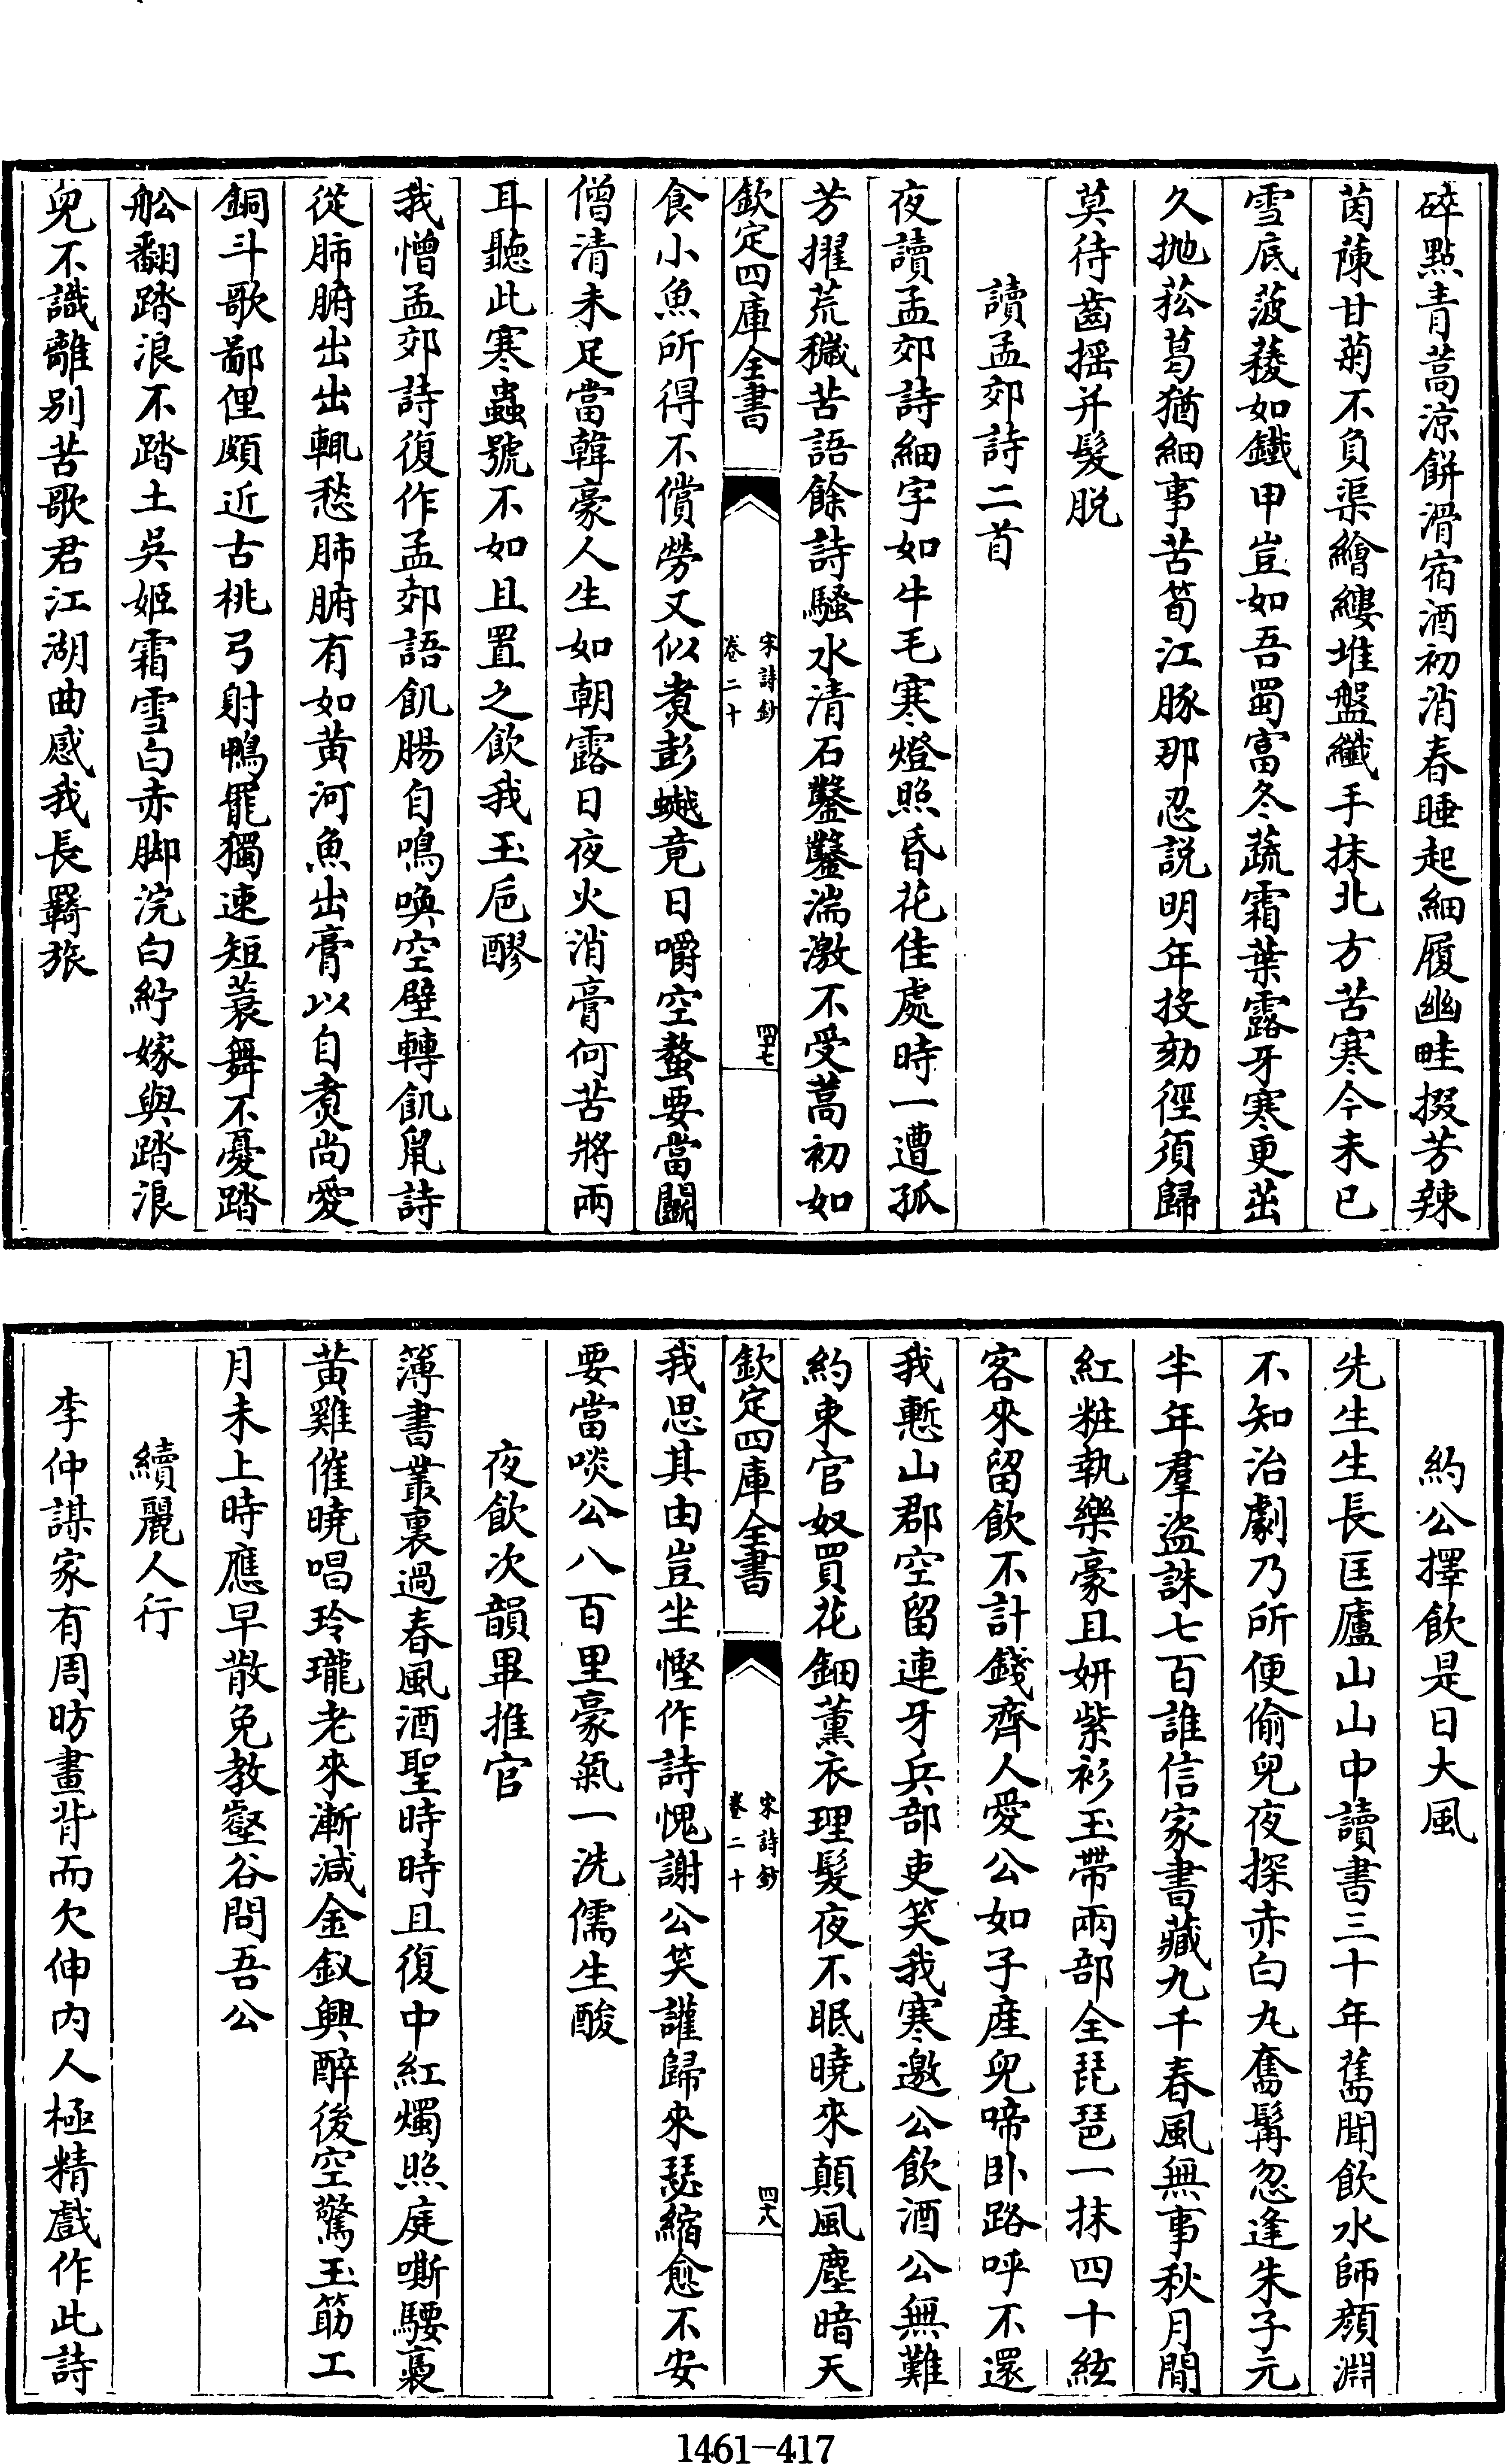 碎點青蒿涼餅滑宿酒初消春睡起細履幽畦掇芳辣
茵蔯甘菊不負渠繪縷堆盤纖手抹北方苦寒今未已
雪底菠薐如鐵甲豈如吾蜀富冬蔬霜葉露牙寒更茁
久抛菘葛猶細事苦筍江豚那忍説明年投劾徑須歸
莫待齒揺并髮脱
讀孟郊詩二首
夜讀孟郊詩細字如牛毛寒燈照昏花佳處時一遭孤
芳擢荒穢苦語餘詩騷水清石鑿鑿湍激不受蒿初如
欽定四庫全書
宋詩鈔
卷二十
四七
食小魚所得不償勞又似煑彭𧑅竟日嚼空螯要當鬭
僧清未足當韓豪人生如朝露日夜火消膏何苦將兩
耳聽此寒蟲號不如且置之飲我玉巵醪
我憎孟郊詩復作孟郊語飢腸自鳴喚空壁轉飢鼠詩
從肺腑出出輒愁肺腑有如黄河魚出膏以自煑尚愛
銅斗歌鄙俚頗近古桃弓射鴨罷獨速短蓑舞不憂踏
舩翻踏浪不踏土吳姬霜雪白赤脚浣白紵嫁與踏浪
兒不識離别苦歌君江湖曲感我長羇旅
約公擇飲是日大風
先生生長匡廬山山中讀書三十年舊聞飲水師顔淵
不知治劇乃所便偷兒夜探赤白丸奮髯忽逢朱子元
半年羣盜誅七百誰信家書藏九千春風無事秋月閒
紅粧執樂豪且妍紫衫玉帶兩部全琵琶一抹四十絃
客來留飲不計錢齊人愛公如子産兒啼卧路呼不還
我慙山郡空留連牙兵部吏笑我寒邀公飲酒公無難
約束官奴買花鈿薰衣理髮夜不眠曉來顛風塵暗天
欽定四庫全書
宋詩鈔
卷二十
四八
我思其由豈坐慳作詩愧謝公笑讙歸來瑟縮愈不安
要當啖公八百里豪氣一洗儒生酸
夜飲次韻畢推官
簿書叢裏過春風酒聖時時且復中紅燭照庭嘶騕褭
黄雞催曉唱玲瓏老來漸減金釵興醉後空驚玉筯工
月未上時應早散免教壑谷問吾公
續麗人行
李仲謀家有周昉畫背面欠伸内人極精戲作此詩
1461-417